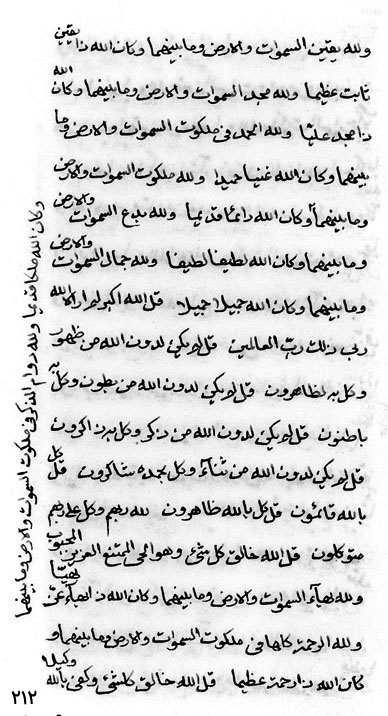 ولله يقين السموات والارض وما بينهما وكان الله ذا يقين
ثابت عظيما ولله مجد السموات والارض وما بينهما وكان الله
ذا مجد عليّا ولله الحمد فى ملكوت السموات والارض وما
بينهما وكان الله غنيا حميدا ولله ملكوت السموات والارض
وما بينهما وكان الله دائما قديما ولله بديع السموات والارض
وما بينهما وكان الله لطيفا لطيفا ولله جمال السموات والارض
وما بينهما وكان الله جميلا جميلا قل الله اكبر الله
ربى ذلك ربّ العالمين قل لم يكن لدون الله من ظهور
وكل به لظاهرون قل لم يكن لدون الله من بطون وكل به
باطنون قل لم يكن لدون الله من ذكر وكل به ذاكرون
قل لم يكن لدون الله من ثناء وكل بحمده شاكرون قل كل
بالله قائمون قل كل بالله ظاهرون لله ربهم وكل على ربهم
متوكلون قل الله خالق كل شئ وهو الحى الممتنع العزيز المحبوب
ولله بهاء السموات والارض وما بينهما وكان الله ذا بهاء
ولله الرحمة كلها فى ملكوت السموات والارض وما بينهما و
كان الله ذا رحمة عظيما قل الله خالق كلشئ وكفى بالله وكيلا
وكان الله ملكا قديما ولله دوام الذكر فى ملكوت السموات والارض وما بينهما
٢١٢